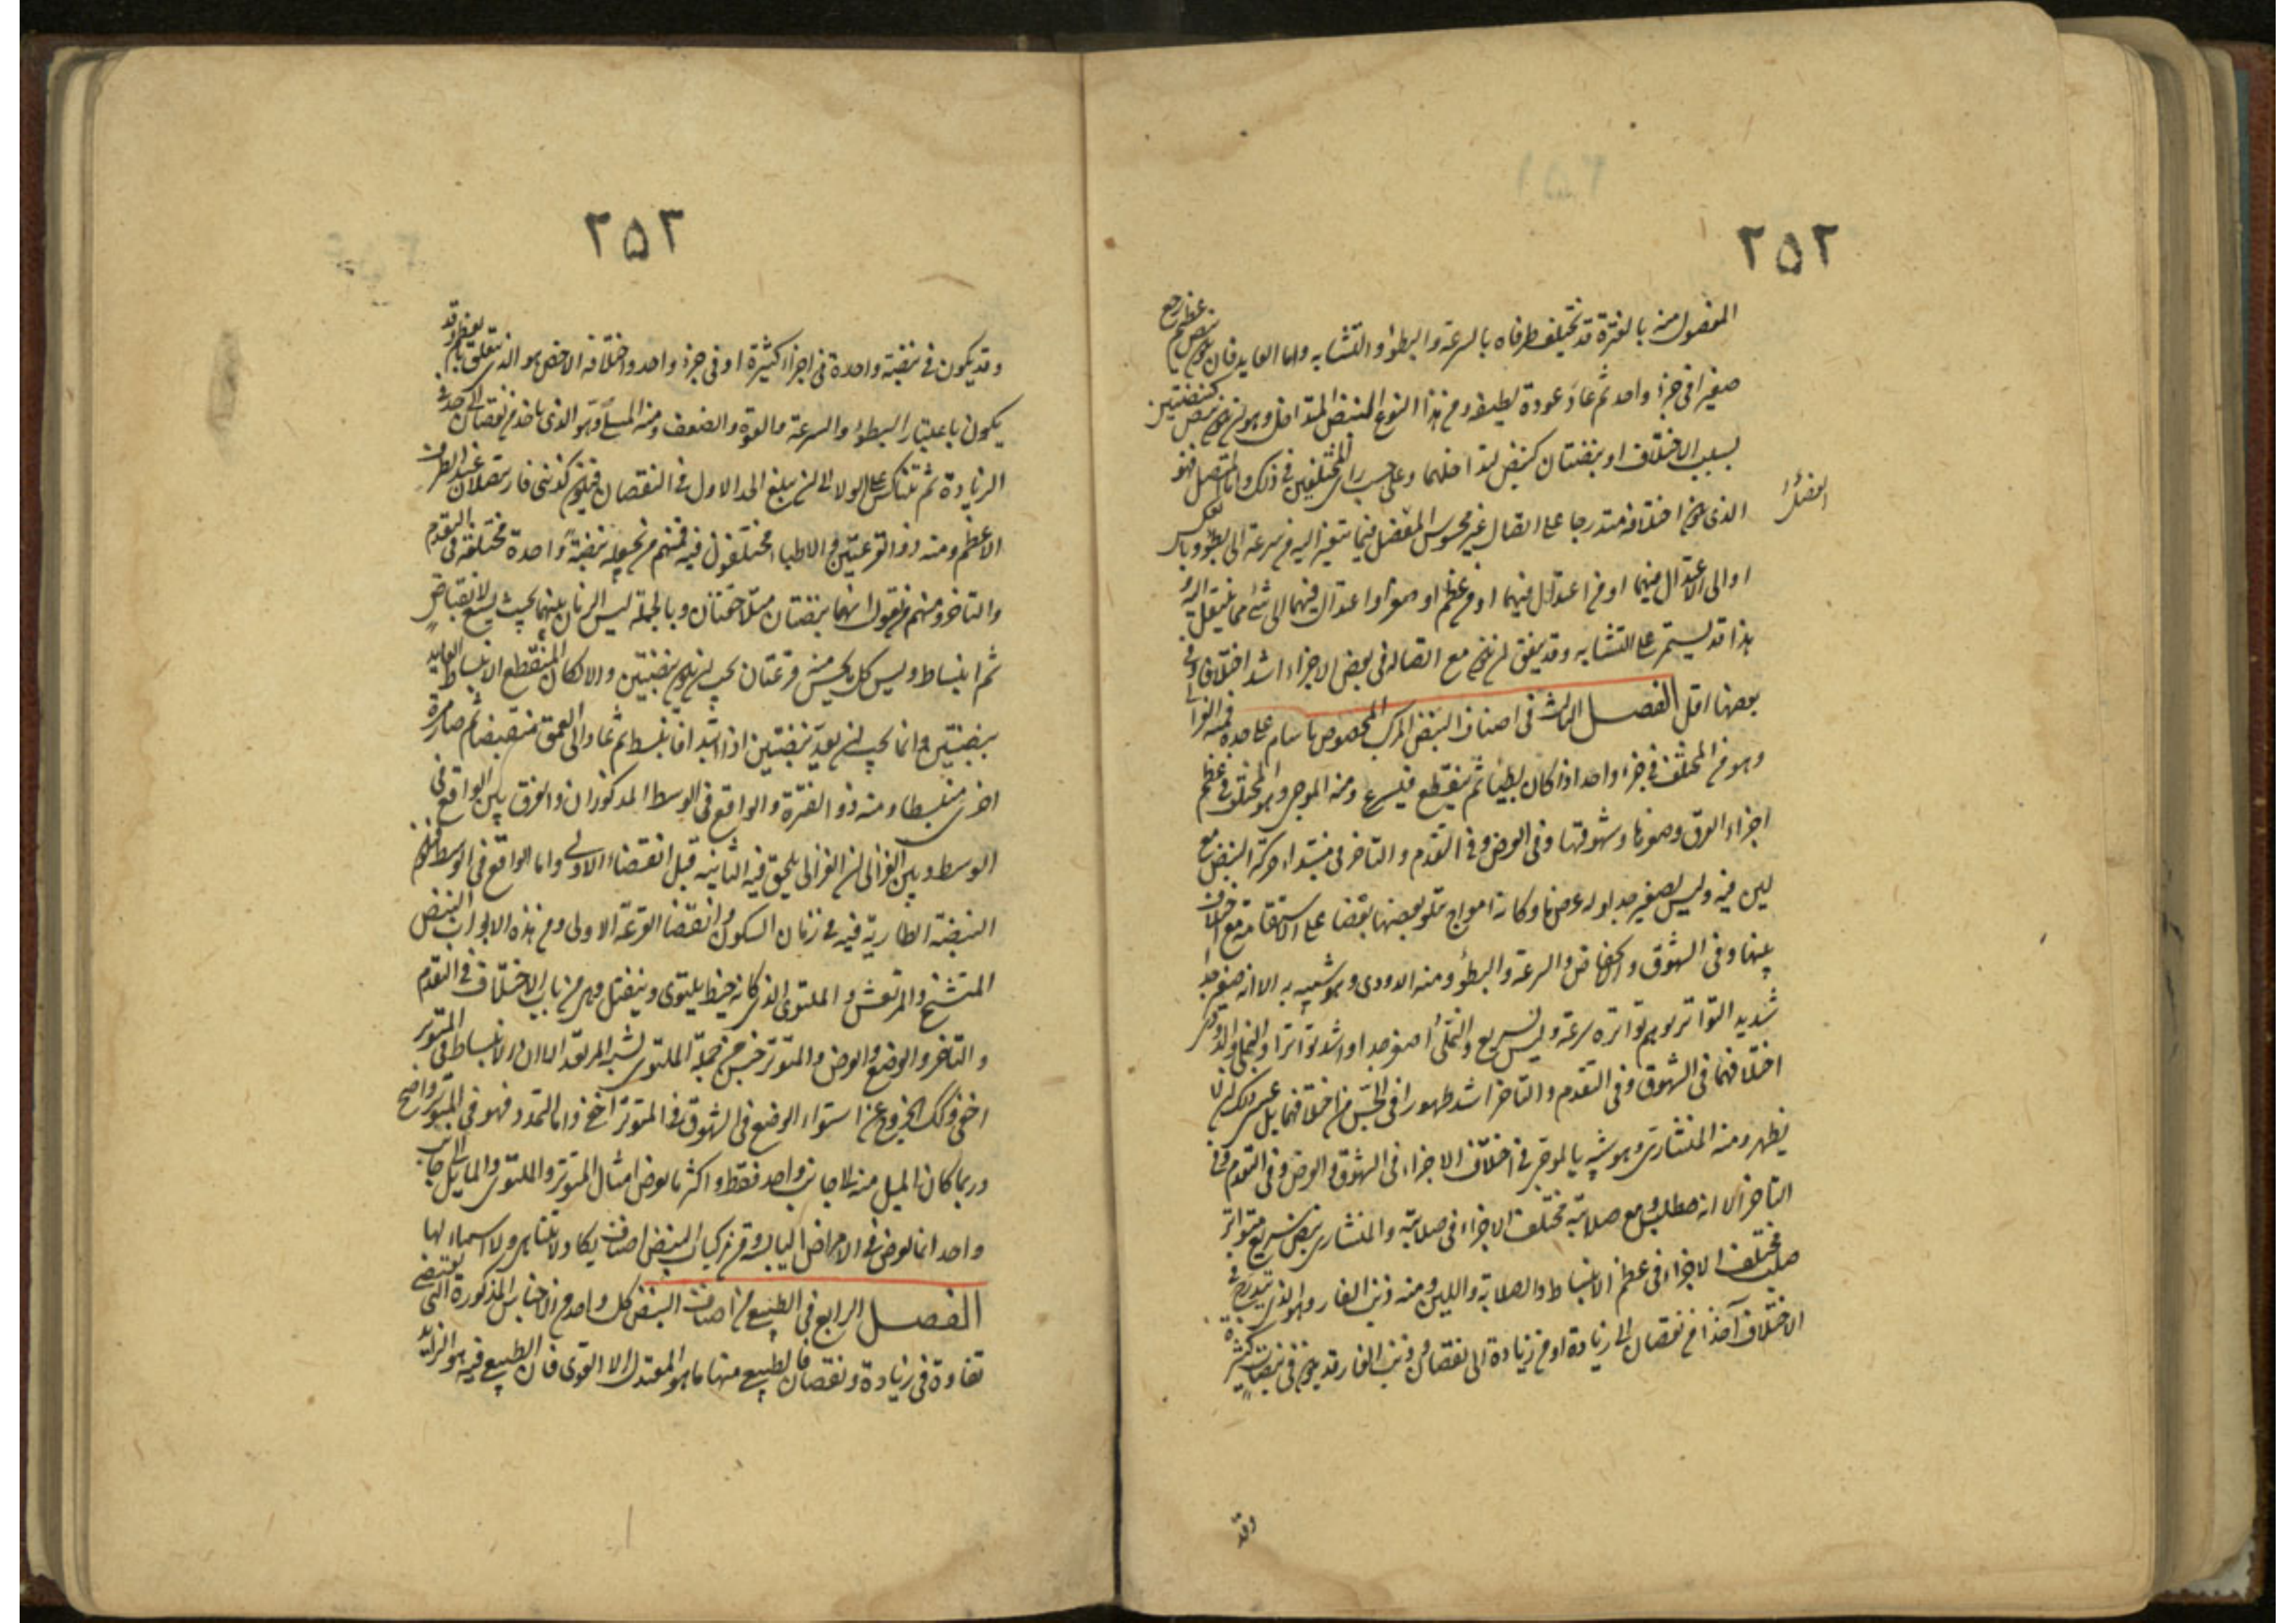 ٢٥٢
المفصول منه بالفترة قد تختلف طرفاه بالسرعة والبطؤ والتشابه واما العايد فان يكون نبض عظيم رجع
صغيرا في جزء واحد ثم عاد عودة لطيفة ومن هذا النوع النبض المتداخل وهو ان يكون نبض كنبضتين
بسبب الاختلاف او نبضتان كنبض لتداخلهما وعلى حسب راى المختلفين في ذلك واما المتصل فهو
الذى يكون اختلافه متدرجا على اتصال غير محسوس الفصل فيما يتغير اليه من سرعة الى بطؤ وبالعكس
او الى الاعتدال فيهما او من اعتدال فيهما او من عظم او صغر او اعتدال فيهما الى شئ مما ينتقل اليه و
هذا قد يستمر على التشابه وقد يتفق ان يكون مع اتصاله في بعض الاجزاء اشد اختلافا وفى
بعضها اقل الفصل الثالث فى اصناف النبض المركب المخصوص باسام على حدة فمنه الغزالى
وهو من المختلف فى جزء واحد اذا كان بطيئا ثم ينقطع فيسرع ومنه الموجى وهو المختلف فى عظم
اجزاء العرق وصغرها وشهوقها وفى العرض وفى التقدم والتاخر فى مبتداء حركة النبض مع
لين فيه وليس بصغير جدا وله عرض ما وكانه امواج يتلو بعضها بعضا على الاستقامة مع اختلاف
بينها وفى الشهوق والانخفاض والسرعة والبطؤ ومنه الدودى وهو شبيه به الا انه صغير جدا
شديد التواتر يوهم تواتره سرعة وليس بسريع والنملى اصغر جدا واشد تواترا والنملى والدودى
اختلافهما فى الشهوق وفى التقدم والتاخر اشد ظهورا فى الحس من اختلافهما بل عسى ذلك ان لا
يظهر ومنه المنشارى وهو شبيه بالموجى فى اختلاف الاجزاء فى الشهوق والعرض وفى التقدم وفى
التاخر الا انه صلب ومع صلابته مختلف الاجزاء فى صلابته والمنشارى نبض سريع متواتر
صلب مختلف الاجزاء فى عظم الانبساط والصلابة واللين ومنه ذنب الفار وهو الذى يتدرج فى
الاختلاف آخذا من نقصان الى زيادة او من زيادة الى نقصان وذنب الفار قد يكون فى نبضات كثيرة
وقد
٢٥٣
وقد يكون فى نبضة واحدة فى اجزاء كثيرة او فى جزء واحد واختلافه الاخص هو الذى يتعلق بالعظم وقد
يكون باعتبار البطؤ والسرعة والقوة والضعف ومنه المسلى وهو الذى ياخذ من نقصان الى حد فى
الزيادة ثم يتناكس على الولاء الى ان يبلغ الحد الاول فى النقصان فيكون كذنبى فار يتصلان عند الطرف
الاعظم ومنه ذو القرعتين والاطباء مختلفون فيه فمنهم من يجعله نبضة واحدة مختلفة فى التقدم
والتاخر ومنهم من يقول انهما نبضتان متلاحقتان وبالجملة ليس الزمان بينهما بحيث يتسع لانقباض
ثم انبساط وليس كل ما يحس منه قرعتان يجب ان يكون نبضتين والا لكان المنقطع الانبساط العايد
نبضتين وانما يجب ان يعد نبضتين اذا ابتدا فانبسط ثم عاد الى العمق منقبضا ثم صار مرة
اخرى منبسطا ومنه ذو الفترة والواقع فى الوسط المذكوران والفرق بين الواقع فى
الوسط وبين الغزالى ان الغزالى يلحق فيه الثانية قبل انقضاء الاولى واما الواقع فى الوسط فيكون
النبضة الطارية فيه فى زمان السكون وانقضا القرعة الاولى ومن هذه الابواب النبض
المتشنج والمرتعش والملتوى الذى كانه خيط يلتوى وينفتل وهى من باب الاختلاف فى التقدم
والتاخر والوضع والعرض والمتوتر جنس من جملة الملتوى يشبه المرتعد الا ان الانبساط فى المتوتر
اخفى وكذلك الخروج عن استواء الوضع فى الشهوق فى المتوتر اخفى واما التمدد فهو فى المتوتر واضح
وربما كان الميل منه الى جانب واحد فقط واكثر ما يعرض امثال المتوتر والملتوى والمايل الى جانب
واحد انما يعرض فى الامراض اليابسة ومن تركيب النبض اصناف يكاد لا تتناهى ولا اسماء لها
الفصل الرابع فى الطبيعى من اصناف النبض كل واحد من الاجناس المذكورة التى تقتضى
تفاوتا فى زيادة ونقصان فالطبيعى منها ما هو المعتدل الا القوى فان الطبيعى فيه هو الزايد